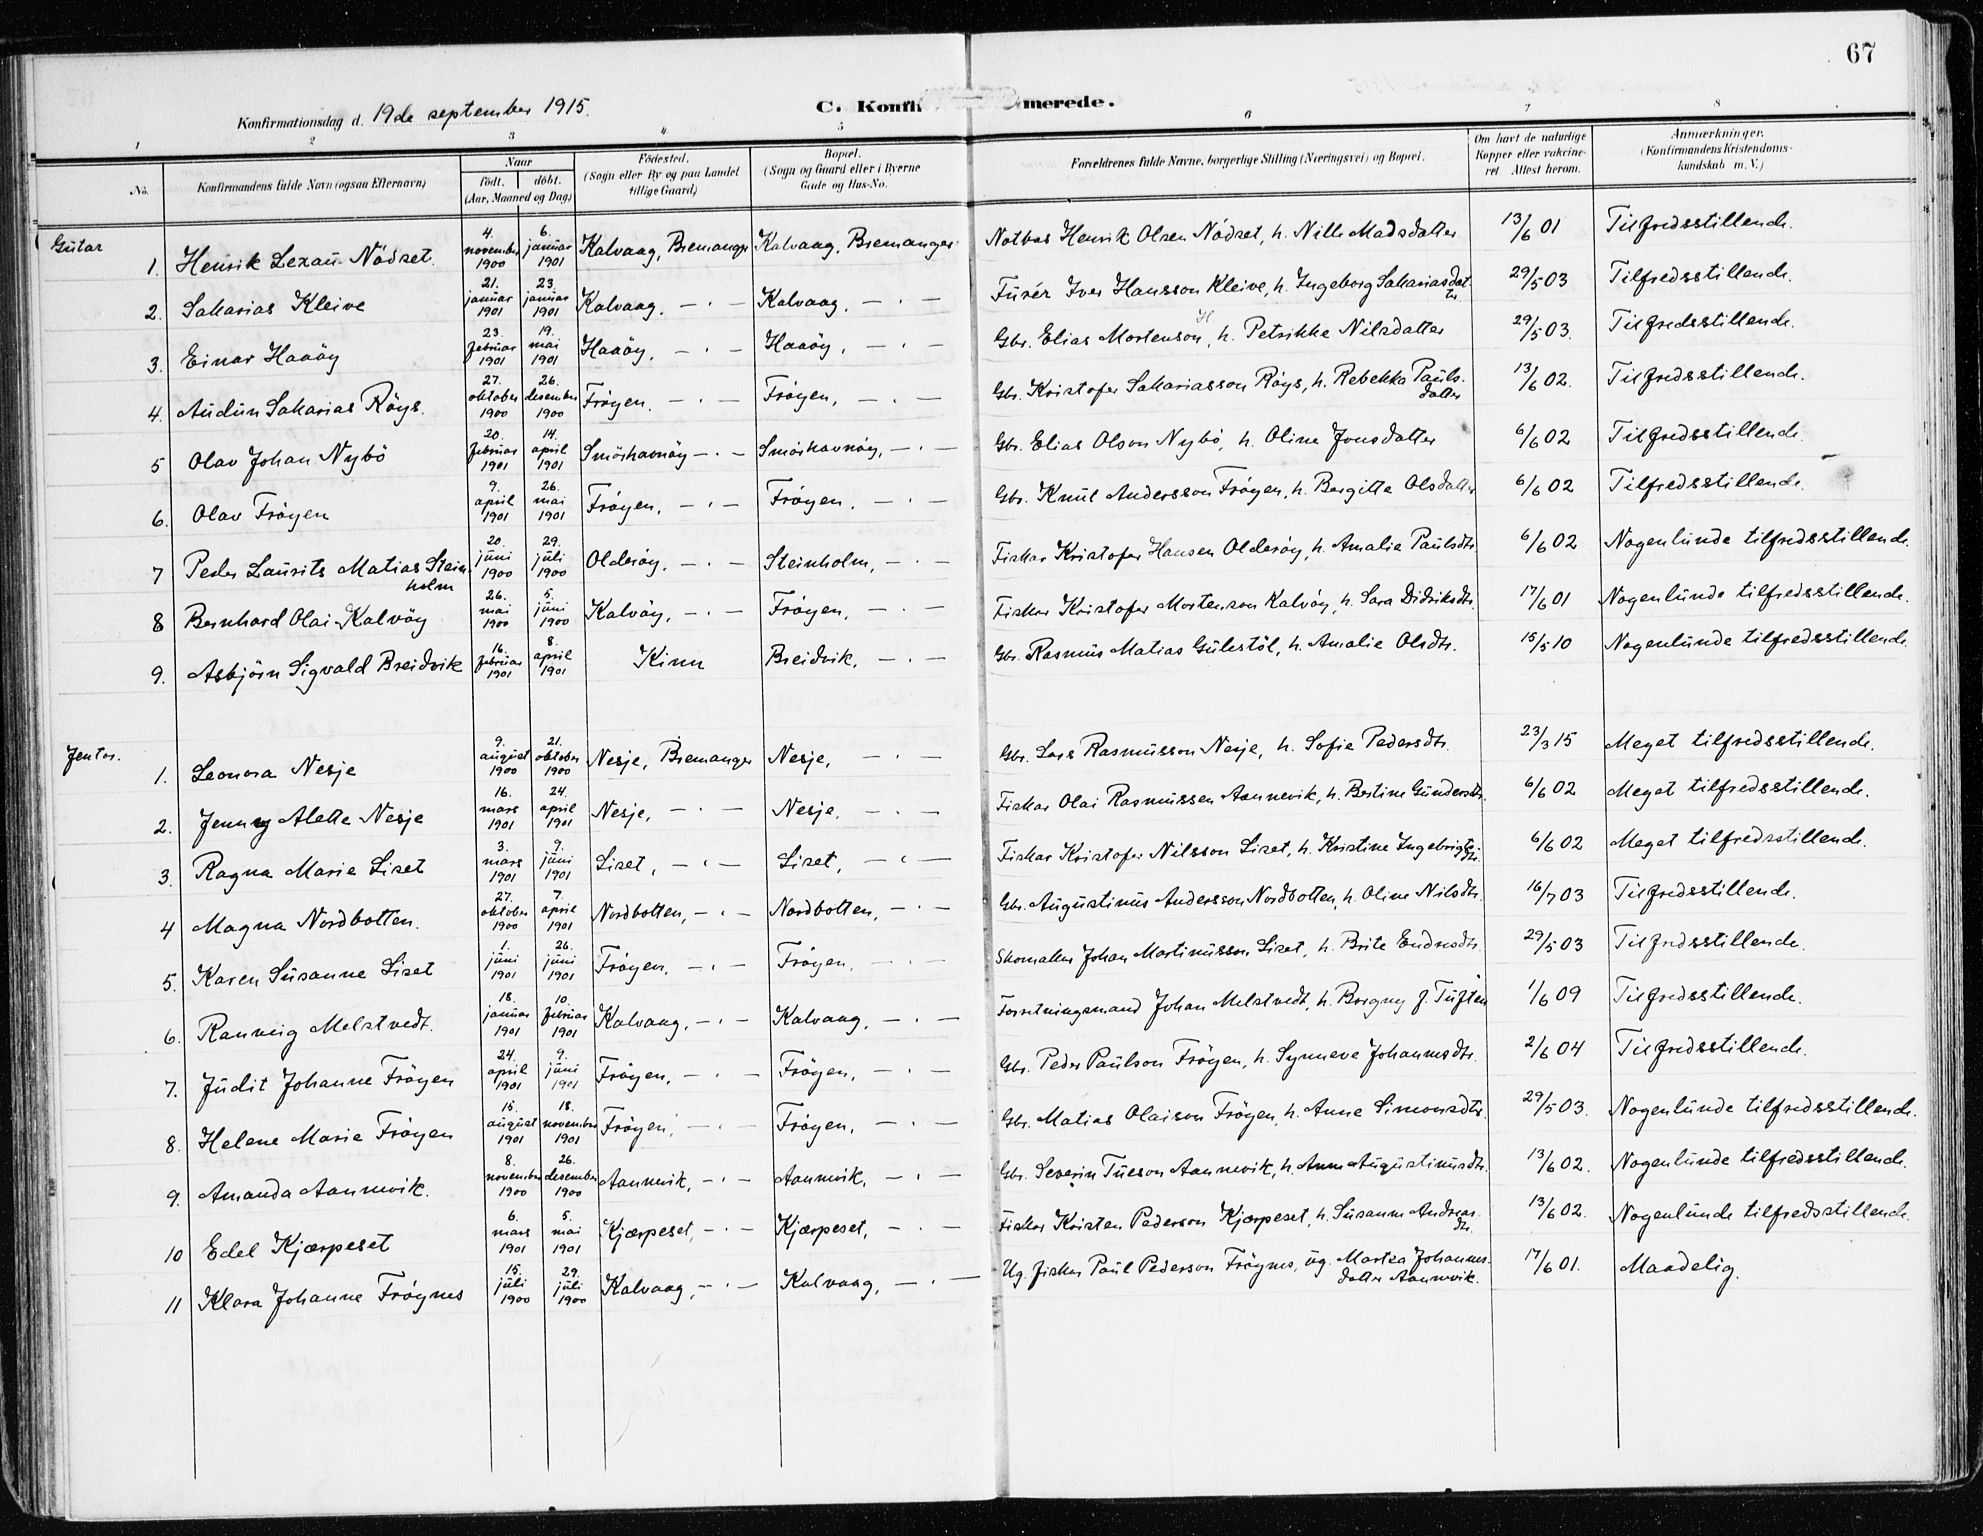 67
Konfirmationsdag d. 19de september 1915.
C. Konfirmerede.
1 2 3 4 5 6 7 8
No.
Konfirmandens fulde Navn (ogsaa Efternavn)
Naar
født. døbt.
(Aar, Maaned og Dag)
Fødested.
(Sogn eller By og paa Landet
tillige Gaard)
Bopæl.
(Sogn og Gaard eller i Byerne
Gade og Hus-No.
Forældrenes fulde Navne, borgerlige Stilling (Næringsvei) og Bopæl.
Om havt de naturlige
Kopper eller vakcine-
ret Attest herom.
Anmærkninger.
(Konfirmandens Kristendoms-
kundskab m. V.)
Gutar
1. Henrik Lexau Nödset. 4. november 1900 6. januar 1901 Kalvaag, Bremanger Kalvaag, Bremanger. Notbas Henrik Olsen Nödset, h. Nille Madsdatter 13/6 01 Tilfredsstillende.
2. Sakarias Kleive 21. januar 1901 23. januar 1901 Kalvaag, — · — Kalvaag, — · — Furér Iver Hansson Kleive, h. Ingeborg Sakariasdatter 29/5 03 Tilfredsstillende.
3. Einar Haaöy 23. februar 1901 19. mai 1901 Haaöy, — · — Haaöy, — · — Gbr. Elias Mortenson H, h. Petrikke Nilsdatter 29/5 03. Tilfredsstillende.
4. Audun Sakarias Röys. 27. oktober 1900 26. desember 1900 Fröyen, — · — Fröyen, — · — Gbr. Kristofer Sakariasson Röys, h. Rebekka Pauls-datter 13/6 02. Tilfredsstillende.
5 Olav Johan Nybö 20. februar 1901 14. april 1901 Smörhavnöy — · — Smörhavnöy, — · — Gbr. Elias Olson Nybö, h. Oline Jonsdatter 6/6 02 Tilfredsstillende.
6. Olav Fröyen 9. april 1901 26. mai 1901 Fröyen, — · — Fröyen, — · — Gbr. Knut Andersson Fröyen, h. Bergitte Olsdatter 6/6 02 Tilfredsstillende.
7 Peder Laurits Matias Stein-holm 20. juni 1900 29. juli 1900 Olderöy, — · — Steinholm, — · — Fiskar Kristofer Hansen Olderöy, h. Amalie Paulsdtr. 6/6 02 Nogenlunde tilfredsstillende.
8 Bernhard Olai Kalvöy 26. mai 1900 5. juni 1900 Kalvöy, — · — Fröyen, — · — Fiskar Kristofer Mortenson Kalvöy, h. Sara Didriksdtr. 17/6 01 Nogenlunde tilfredsstillende.
9. Asbjörn Sigvald Breidvik 16. februar 1901 8. april 1901 Kinn Breidvik, — · — Gbr. Rasmus Matias Gulestöl, h. Amalie Olsdtr. 15/5 10 Nogenlunde tilfredsstillende.
Jentor.
1. Leonora Nesje 9. august 1900 21. oktober 1900 Nesje, Bremanger Nesje, — · — Gbr. Lars Rasmusson Nesje, h. Sofie Pedersdtr. 23/3 15 Meget tilfredsstillende.
2. Jenny Alette Nesje 16. mars 1901 24. april 1901 Nesje, — · — Nesje, — · — Fiskar Olai Rasmussen Aannevik, h. Bertine Gundersdtr. 6/6 02 Meget tilfredsstillende.
3. Ragna Marie Liset 3. mars 1901 9. juni 1901 Liset, — · — Liset, — · — Fiskar Kristofer Nilsson Liset, h. Kristine Ingebrigts-dtr. 6/6 02 Meget tilfredsstillende.
4 Magna Nordbotten. 27. oktober 1900 7. april 1901 Nordbotten, — · — Nordbotten, — · — Gbr. Augustinus Andersson Nordbotten, h. Oline Nilsdtr. 16/7 03 Tilfredsstillende.
5. Karen Susanne Liset 1. juni 1901 26. juni 1901 Fröyen, — · — Fröyen, — · — Skomaker Johan Martinusson Liset, h. Brite Endresdtr. 29/5 03 Tilfredsstillende.
6. Ranveig Melstvedt. 18. januar 1901 10. februar 1901 Kalvaag, — · — Kalvaag, — · — Forretningsmand Johan Melstvedt, h. Borgny f. Tuften 1/6 09 Tilfredsstillende.
7. Judit Johanne Fröyen 24. april 1901 9. juni 1901 Fröyen, — · — Fröyen, — · — Gbr. Peder Paulson Fröyen, h. Synneve Johannesdtr. 2/6 04 Tilfredsstillende.
8. Helene Marie Fröyen 15. august 1901 18. november 1901 Fröyen, — · — Fröyen, — · — Gbr. Matias Olaison Fröyen, h. Anne Simonsdtr. 29/5 03. Nogenlunde tilfredsstillende.
9. Amanda Aannevik. 8. november 1900 26. desember 1900 Aannevik, — · — Aannevik, — · — Gbr. Severin Tueson Aannevik, h. Anne Augustinusdtr. 13/6 02. Nogenlunde tilfredsstillende.
10 Edel Kjærpeset 6. mars 1901 5. mai 1901 Kjærpeset, — · — Kjærpeset, — · — Fiskar Kristen Pederson Kjærpeset, h. Susanne Andreas-dtr. 13/6 02. Nogenlunde tilfredsstillende.
11 Klara Johanne Fröynes 15. juli 1900 29. juli 1900 Kalvaag, — · — Kalvaag, — · — Ug. fisker Paul Pederson Fröynes, ug. Martea Johannes-datter Aannevik. 17/6 01. Maadelig.